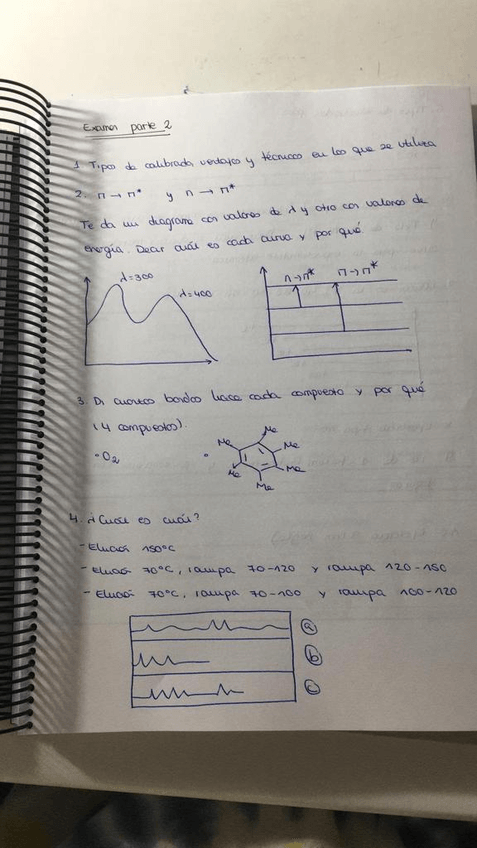 Examen parte 2
1. Tipos de calibrado, ventajas y técnicas en las que se utiliza
2. π → π* y n → π*
Te da un diagrama con valores de λ y otro con valores de
energía. Decir cuál es cada curva y por qué.
λ=300
λ=400
n→π* π→π*
3. Di cuantas bandas hace cada compuesto y por qué
(4 compuestos).
- O₂
Me
Me
Me
Me
Me
Me
4. ¿Cuál es cuál?
- Elución 150°C
- Elución 70°C, rampa 70-120 y rampa 120-150
- Elución 70°C, rampa 70-100 y rampa 100-120
a
b
c